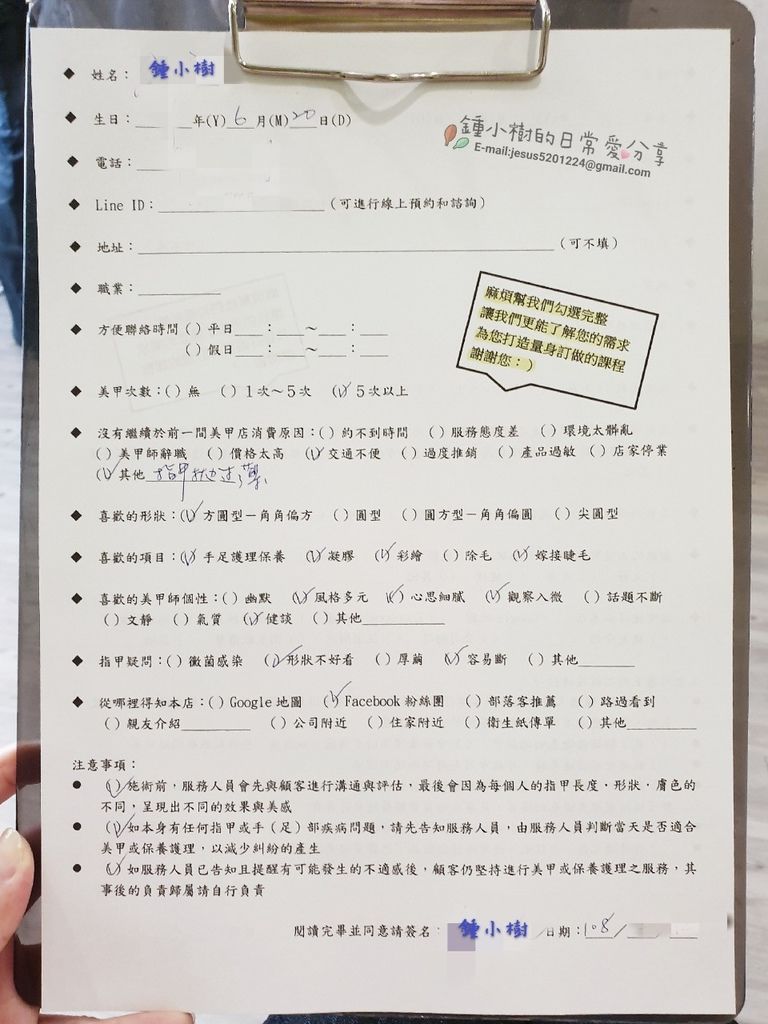 ◆ 姓名：鍾小樹
◆ 生日：____年(Y) 6 月(M) 20 日(D)
鍾小樹的日常愛分享
E-mail:jesus5201224@gmail.com
◆ 電話：___
◆ Line ID：____________________（可進行線上預約和諮詢）
◆ 地址：________________________________________（可不填）
◆ 職業：__________
麻煩幫我們勾選完整
讓我們更能了解您的需求
為您打造量身訂做的課程
謝謝您：）
◆ 方便聯絡時間 ( ) 平日___：___～___：___
( ) 假日___：___～___：___
◆ 美甲次數：( ) 無 ( ) 1次～5次 (✓) 5次以上
◆ 沒有繼續於前一間美甲店消費原因：( ) 約不到時間 ( ) 服務態度差 ( ) 環境太髒亂
( ) 美甲師辭職 ( ) 價格太高 (✓) 交通不便 ( ) 過度推銷 ( ) 產品過敏 ( ) 店家停業
(✓) 其他 指甲
◆ 喜歡的形狀：(✓) 方圓型－角角偏方 ( ) 圓型 ( ) 圓方型－角角偏圓 ( ) 尖圓型
◆ 喜歡的項目：(✓) 手足護理保養 (✓) 凝膠 (✓) 彩繪 ( ) 除毛 (✓) 嫁接睫毛
◆ 喜歡的美甲師個性：( ) 幽默 (✓) 風格多元 (✓) 心思細膩 (✓) 觀察入微 ( ) 話題不斷
( ) 文靜 ( ) 氣質 (✓) 健談 ( ) 其他__________
◆ 指甲疑問：( ) 黴菌感染 (✓) 形狀不好看 ( ) 厚繭 (✓) 容易斷 ( ) 其他_______
◆ 從哪裡得知本店：( ) Google 地圖 (✓) Facebook 粉絲團 ( ) 部落客推薦 ( ) 路過看到
( ) 親友介紹________ ( ) 公司附近 ( ) 住家附近 ( ) 衛生紙傳單 ( ) 其他________
注意事項：
● (✓) 施術前，服務人員會先與顧客進行溝通與評估，最後會因為每個人的指甲長度，形狀，膚色的
不同，呈現出不同的效果與美感
● (✓) 如本身有任何指甲或手（足）部疾病問題，請先告知服務人員，由服務人員判斷當天是否適合
美甲或保養護理，以減少糾紛的產生
● (✓) 如服務人員已告知且提醒有可能發生的不適感後，顧客仍堅持進行美甲或保養護理之服務，其
事後的負責歸屬請自行負責
閱讀完畢並同意請簽名 鍾小樹 日期：108/